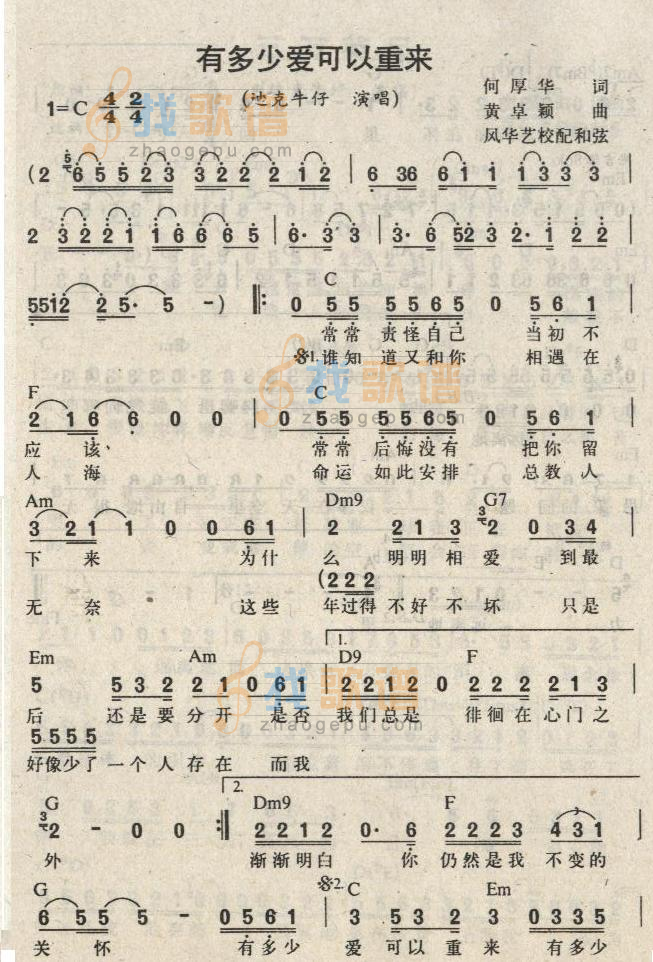 有多少爱可以重来
1=C 4/4 2/4 (迪克牛仔 演唱) 何厚华 词
黄卓颖 曲
风华艺校配和弦
找歌谱
zhaogepu.com
(2 6 5 5 2 3 3 2 2 2 1 2 | 6 36 6 1 1 1 3 3 3 |
2 3 2 2 1 1 6 6 6 5 | 6· 3 3 | 3· 6 52 3 2· 1 2 2 |
C
5512 2 5· 5 -) ‖: 0 5 5 5 5 6 5 0 5 6 1 |
常常 责怪自己 当初不
𝄋1.谁知 道又和你 相遇在
F C
2 1 6 6 0 0 | 0 5 5 5 5 6 5 0 5 6 1 |
应该 常常 后悔没有 把你留
人海 命运 如此安排 总教人
Am Dm9 G7
3 2 1 1 0 0 6 1 | 2 2 2 1 3 2 0 3 4 |
下来 为什 么 明明相爱 到最
(2 2 2
无奈 这些 年过得不好不坏 只是
1.
Em Am D9 F
5 5 3 2 2 2 1 0 6 1 | 2 2 1 2 0 2 2 2 2 1 3 |
后 还是要分开 是否 我们总是 徘徊在心门之
5 5 5 5
好像少了一个人存在 而我
2.
G Dm9 F
2 - 0 0 :‖ 2 2 1 2 0· 6 2 2 2 3 4 3 1 |
外 渐渐明白 你 仍然是我 不变的
G 𝄋2. C Em
6 5 5 5 - 0 5 6 1 | 3 5 3 2 3 0 3 3 5 |
关怀 有多少 爱可以重来 有多少